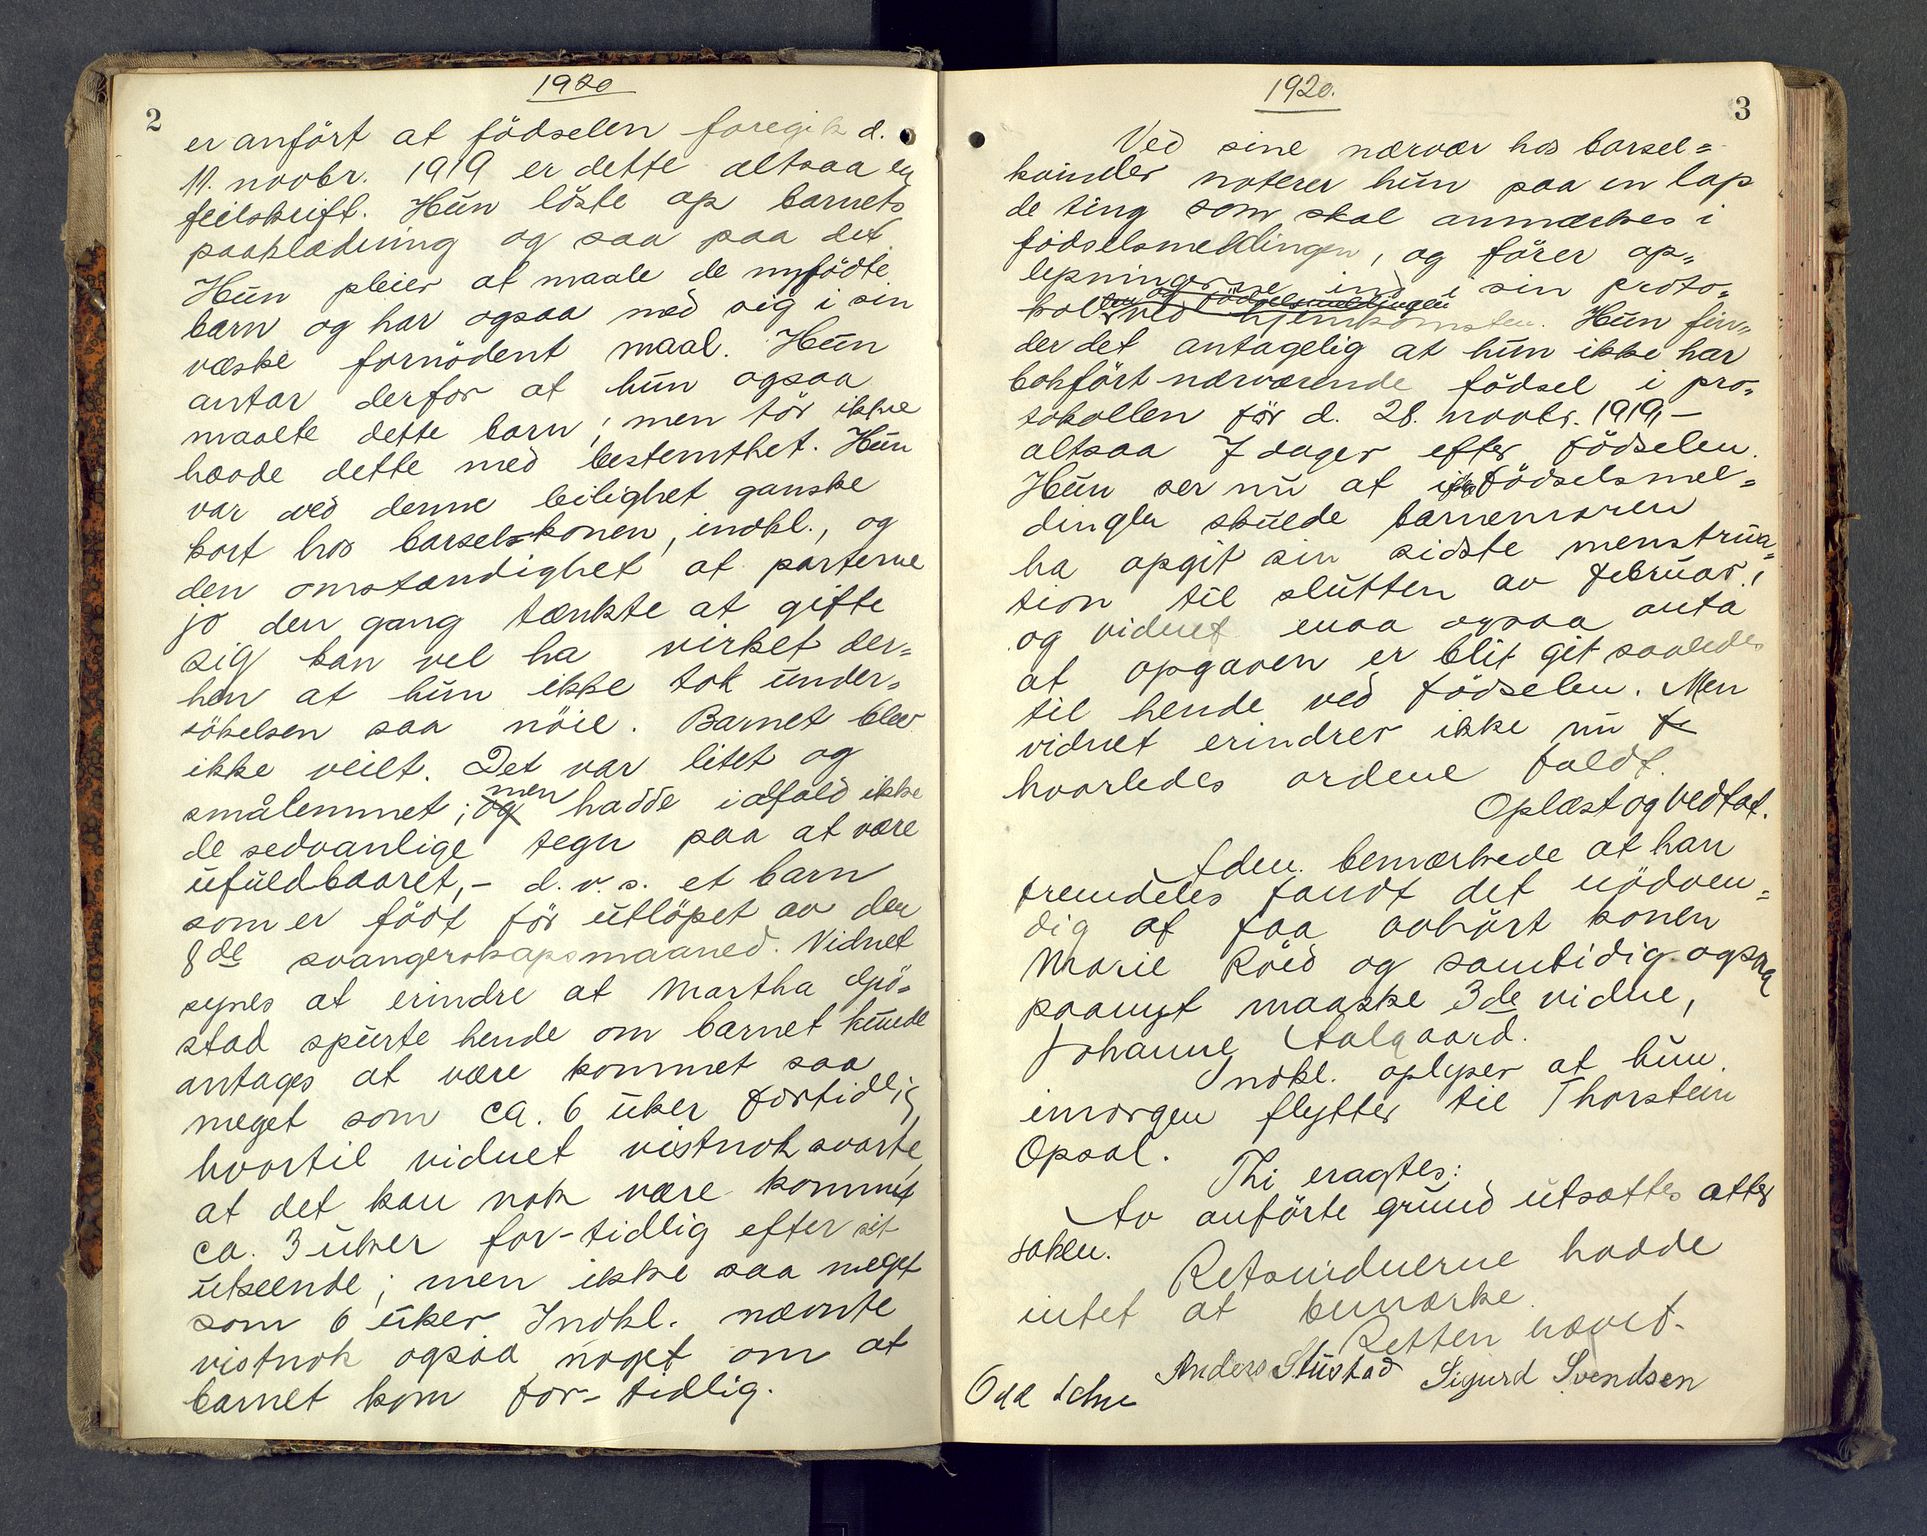 1920
2
er anført at födselen foregik d.
11. novbr. 1919 er dette altsaa en
feilskrift. Hun löste op barnets
paaklædning og saa paa det.
Hun pleier at maale de nyfödte
barn og har ogsaa med sig i sin
væske fornödent maal. Hun
antar derfor at hun ogsaa
maalte dette barn; men tör ikke
hævde dette med bestemthet. Hun
var ved denne leilighet ganske
kort hos barselskonen, indkl., og
den omstændighet at parterne
jo den gang tænkte at gifte
sig kan vel ha virket der-
hen at hun ikke tok under-
sökelsen saa nöie. Barnet blev
ikke veiet. Det var litet og
smålemmet; og men hadde ialfald ikke
de sedvanlige tegn paa at være
ufuldbaaret, - d.v.s. et barn
som er födt för utlöpet av den
8de svangerskapsmaaned. Vidnet
synes at erindre at Martha
stad spurte hende om barnet kunde
antages at være kommet saa
meget som ca. 6 uker fortidlig,
hvortil vidnet vistnok svarte,
at det kan nok være kommet
ca. 3 uker for-tidlig efter sit
utseende; men ikke saa meget
som 6 uker Indkl. nævnte
vistnok ogsaa noget om at
barnet kom for-tidlig.
1920.
3
Ved sine nærvær hos barsel-
kvinder noterer hun paa en lap
de ting som skal anmærkes i
födselsmeldingen, og förer op-
lysningerne ind i sin proto-
kol og födselsmeldingen ved hjemkomsten. Hun fin-
der det antagelig at hun ikke har
bokfört nærværende födsel i pro-
tokollen för d. 28. novbr. 1919, -
altsaa 7 dager efter födselen.
Hun ser nu at i födselsmel-
dingen skulde barnemoren
ha opgit sin sidste menstrua-
tion til slutten av februar,
og vidnet maa ogsaa anta
at opgaven er blit git saaledes
til hende ved födselen. Men
vidnet erindrer ikke nu
hvorledes ordene faldt.
Oplæst og vedtat.
bemærkede at han
fremdeles fandt det nödven-
dig at faa avhört konen
Marie Röed og samtidig ogsaa
paanyt maaske 3de vidne,
Johanne Aalgaard.
Indkl. oplyser at hun
imorgen flytter til Thorstein
Opsal.
Thi eragtes:
Av anförte grund utsættes atter
saken.
Retsvidnerne hadde
intet at bemærke.
Retten hævet.
Odd Anders Stustad Sigurd Svendsen